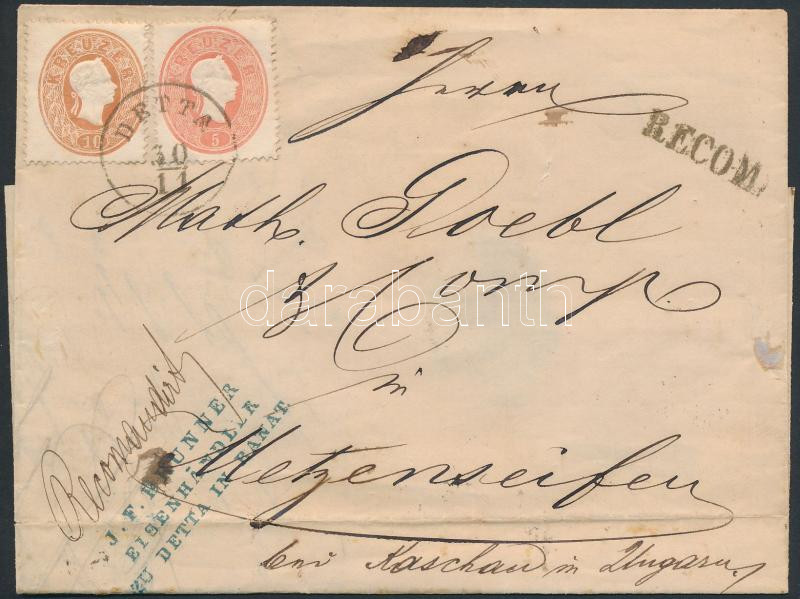 KREUZER
10
KREUZER
5
DETTA
30
11
RECOM.
Herrn
Math. Goebl
& Comp.
in
Metzenseifen
bei Kaschau in Ungarn.
Recomandirt
J. F. BRUNNER
EISENHÄNDLER
ZU DETTA IM BANAT
darabanth